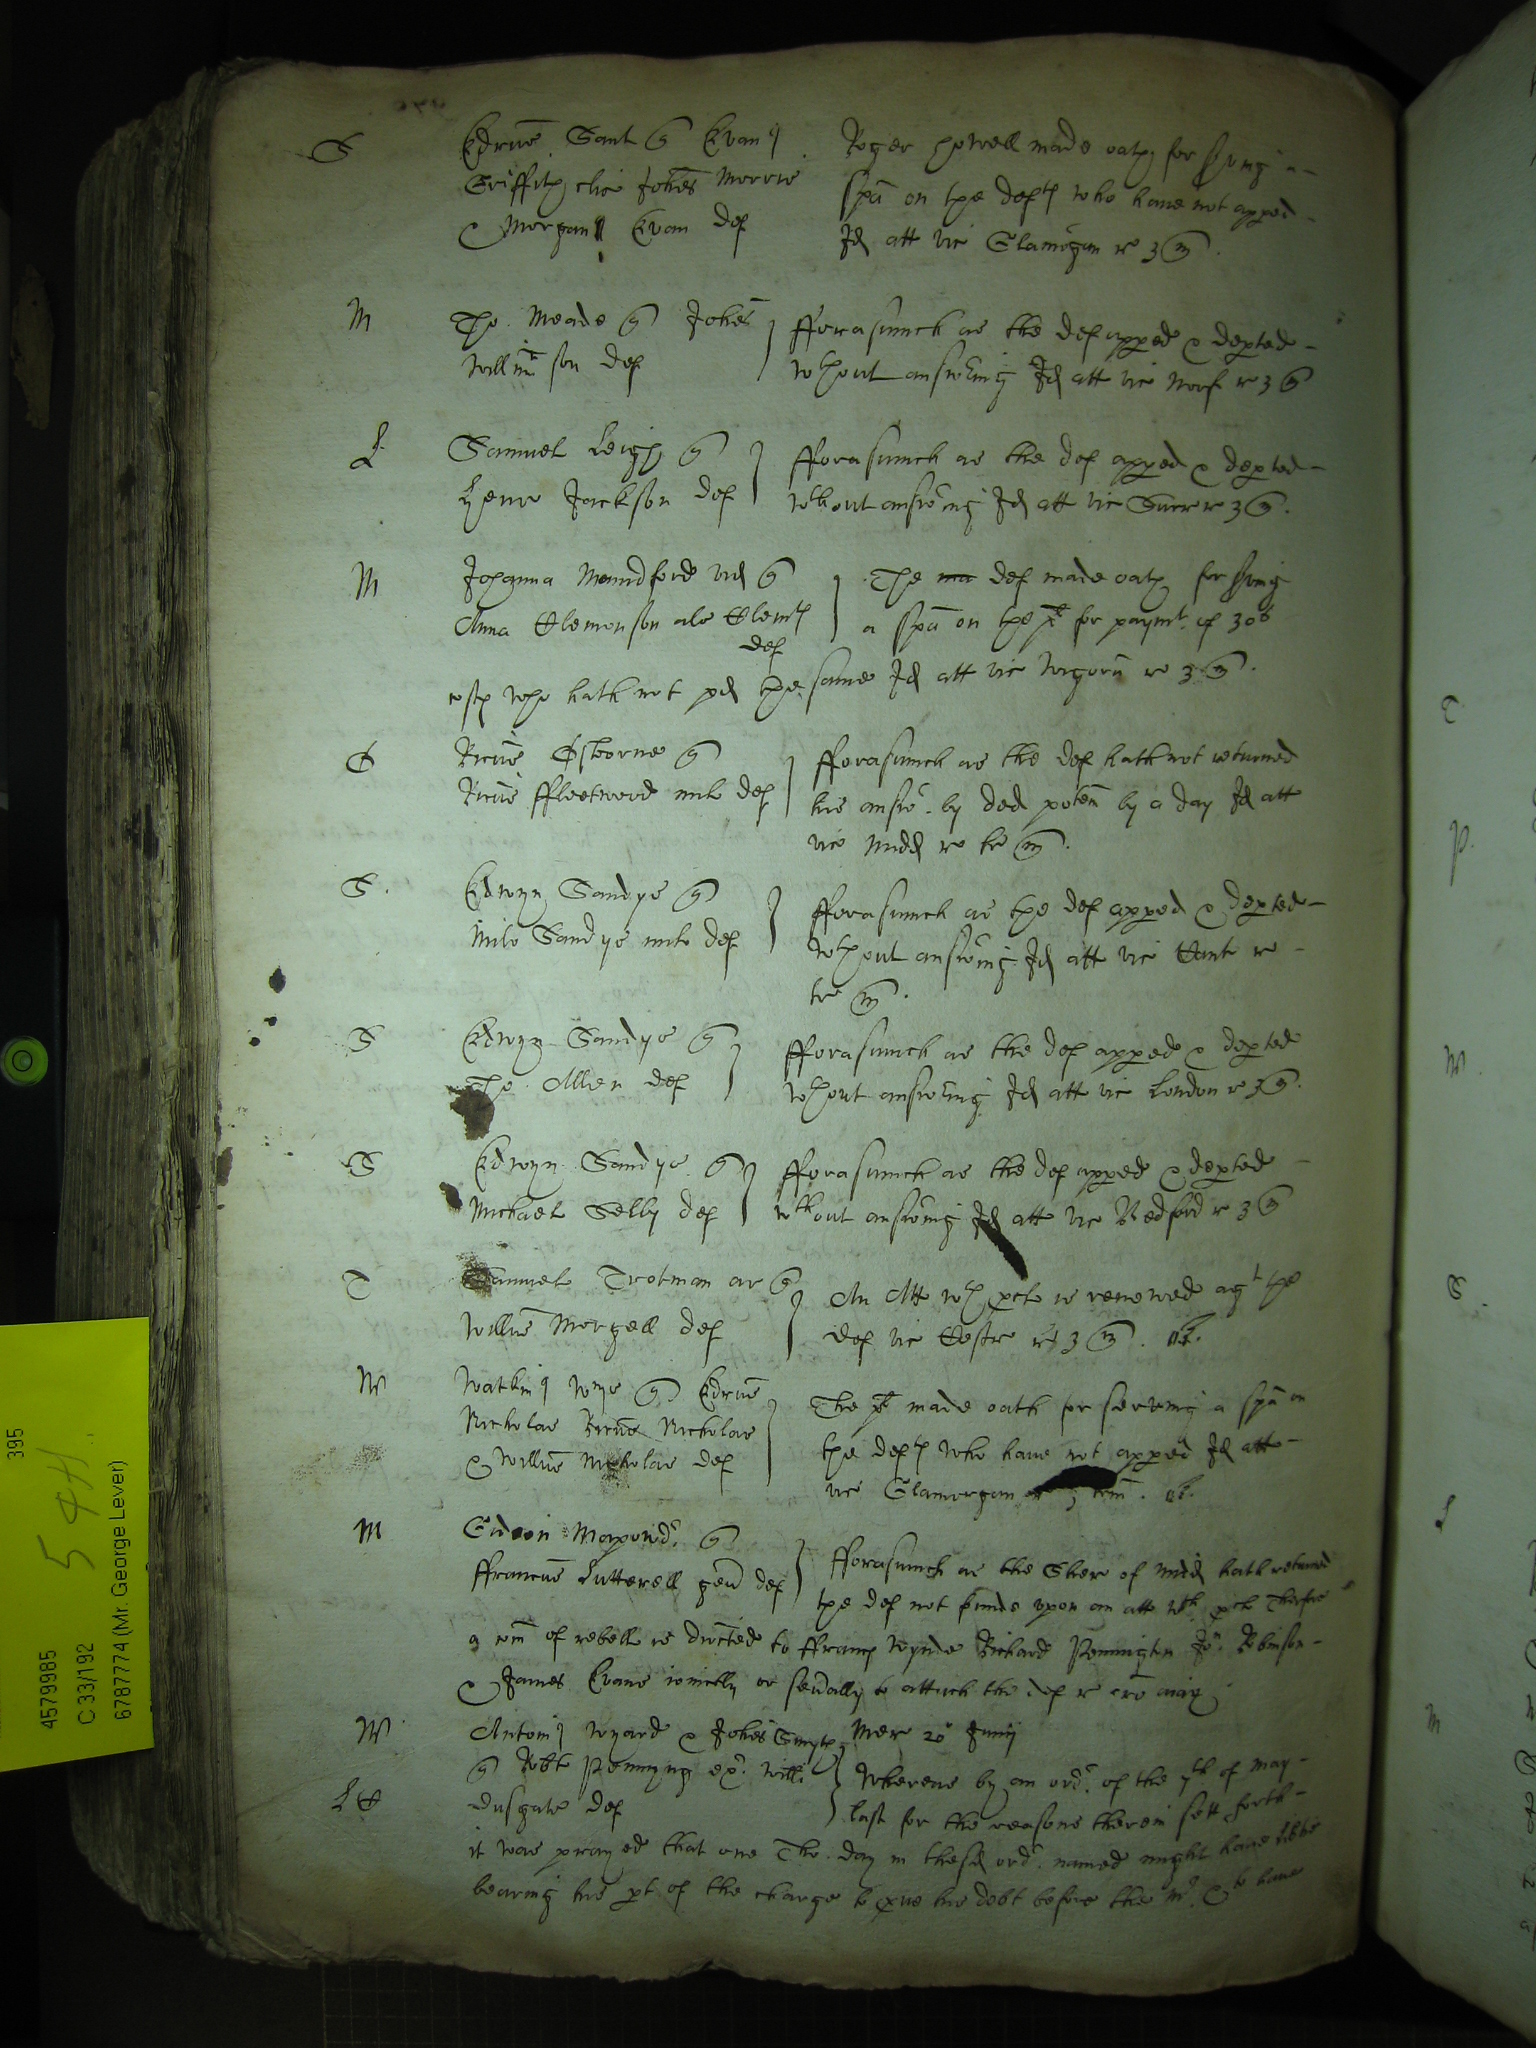 S
Edrus Sant q Evan
Griffith clic Johes Morrie
& Morgan Evan def
Roger Howell made oath for serving a
spa on the deftes who have not apped
Id att vic Glamorgan re 3 m
M
Tho. Meade q Johes
Willmson def
fforasmuch as the def apped & depted
without answering Id att vic Norf re 3 q
L
Samuel Leigh q
Henr Jackson def
fforasmuch as the def apped & depted
without answering Id att vic Surr re 3 q.
M
Johanna Maundford vid q
Anna Clemenson als Clemt
def
The def made oath for serving
a spa on the pt for paymt of 30s
costs who hath not pd the same Id att vic Wigorn re 3 q.
O
Ricus Osborne q
Ricus ffleetwood mile def
fforasmuch as the def hath not returned
his answr by ded potem by a day Id att
vic Midd re tr m.
S.
Edwyn Sandys q
Milo Sandys mile def
fforasmuch as the def apped & depted
without answering Id att vic Cant re
tre m.
S
Edwyn Sandys q
Tho. Allen def
fforasmuch as the def apped & depted
without answering Id att vic London re 3 q.
S
Edwyn Sandys q
Michael Selby def
fforasmuch as the def apped & depted
without answering Id att vic Bedford re 3 q
T
Samuel Trotman ar q
Willus Morgell def
An Att wth pcl is renewed agt the
def vic Cestre re 3 m.
W
Watkin Wye q Edrus
Nicholas Ricus Nicholas
& Willus Nicholas def
The pt made oath for serveing a spa on
the deftes who have not apped Id att
vic Glamorgan
M
ffrancus Lutterell gen def
fforasmuch as the Shere of Midd hath returned
the def not founde upon an att wth pcl Therfore
a com of rebell is directed to ffranc Wynde Richard Pennington Jo. Robinson
& James Evans ioinctly or severally to attach the def re
W
Antoni Wyard & Johes Smyth
q Robt Pennyng exr Willi
Dusgate def
Mer 20 Junij
Whereas by an ordr of the 7th of May
last for the reasons therein sett forth
it was prayed that one Tho. Day in the sd ordr named might have libtie
bearing his pt of the charge to prve his debt before the Mr & to have
395
54H.
4579985
C 33/192
6787774 (Mr. George Lever)